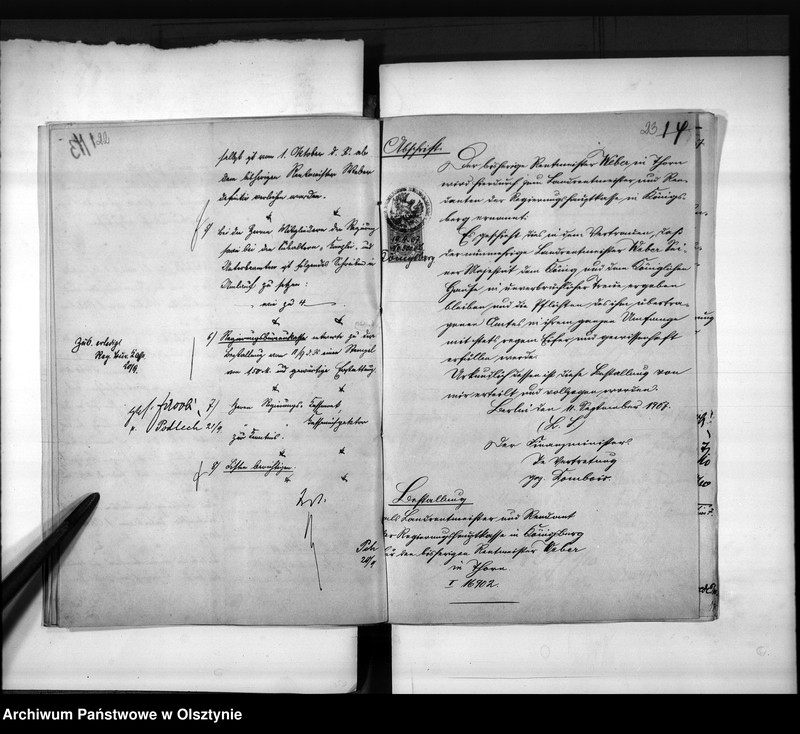 selbst ist vom 1. Oktober d. Js. ab
dem bisherigen Rentmeister Weber
definitiv verliehen worden.
bei den Herren Mitgliedern der Regierung
sowie bei den Subaltern-, Kanzlei- und
Unterbeamten ist folgendes Schreiben in
Umlauf zu setzen:
wie zu 4
Regierungs
zu der
Bestallung vom 11/9 d. Js. einen Stempel
von 1,50 M. und
7) Herrn Regierungs-
zur Kenntnis.
8) Listen berichtigen.
Podlech 21/9.
20/9
23 14
Abschrift.
Der bisherige Rentmeister Weber in Thorn
wird hierdurch zum Landrentmeister und Ren-
danten der Regierungshauptkasse in Königs-
berg ernannt.
Es geschieht dies in dem Vertrauen, daß
der nunmehrige Landrentmeister Weber Sei-
ner Majestät dem König und dem Königlichen
Hause in unverbrüchlicher Treue ergeben
bleiben und die Pflichten des ihm übertra-
genen Amtes in ihrem ganzen Umfange
mit stets regem Eifer und gewissenhaft
erfüllen werde.
Urkundlich dessen ist diese Bestallung von
mir erteilt und vollzogen worden.
Berlin den 11. September 1907.
(L. S.)
Der Finanzminister
In Vertretung
gez. Dombois.
Königsberg
Bestallung
als Landrentmeister und Rendant
der Regierungshauptkasse in Königsberg
für den bisherigen Rentmeister Weber
in Thorn.
I 16902.
Archiwum Państwowe w Olsztynie